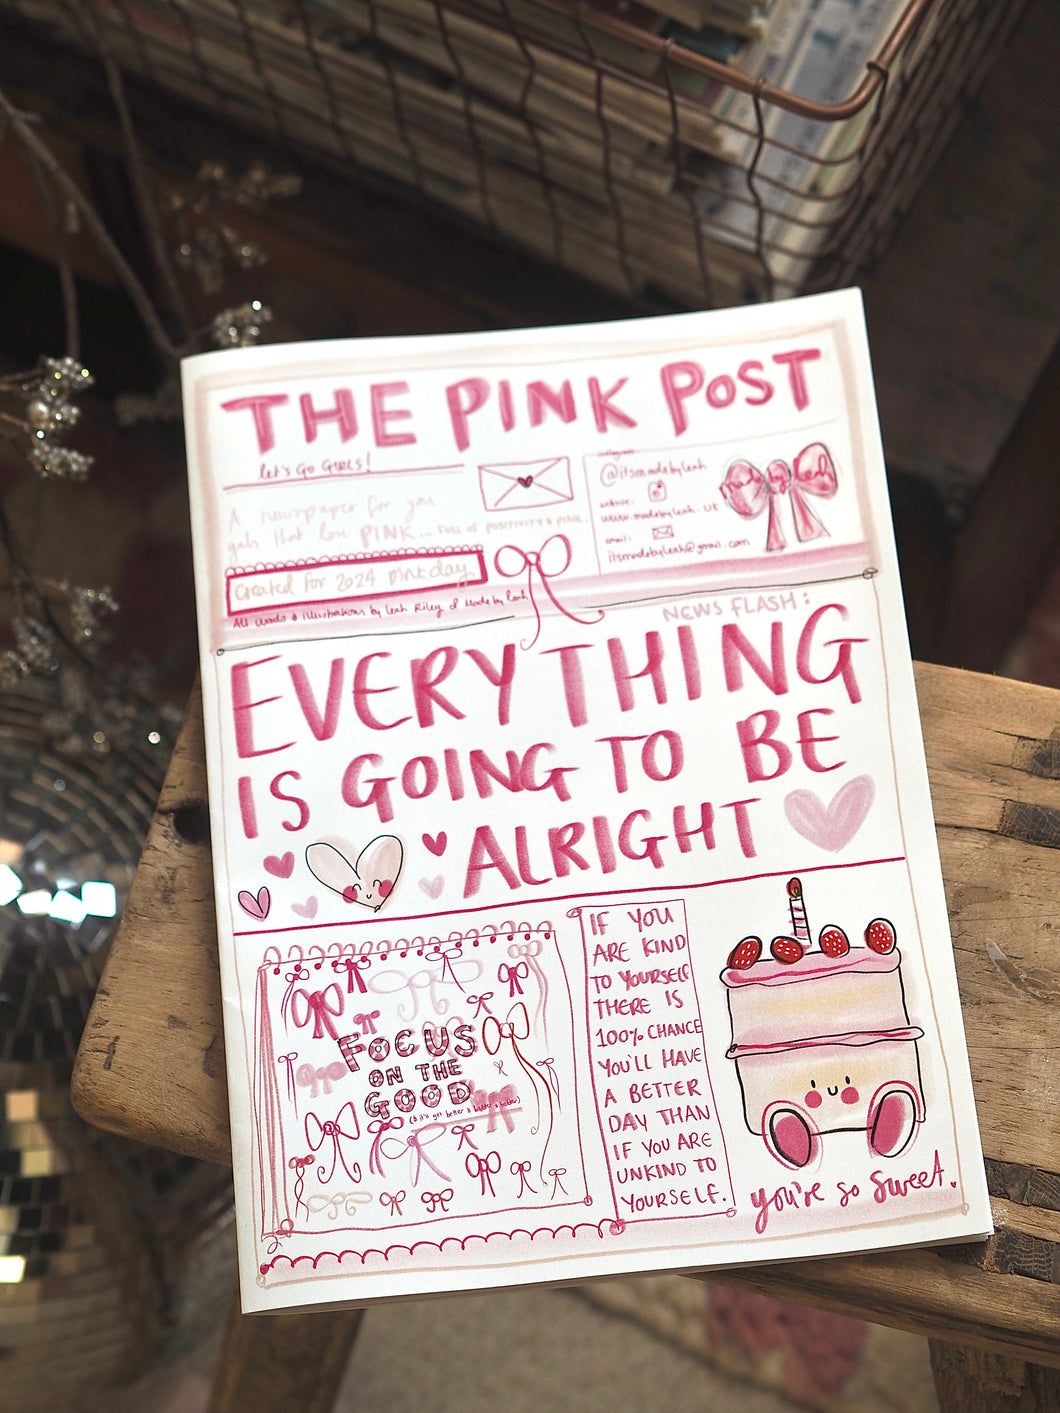 THE PINK POST
let's Go GIRLS!
A newspaper for you
gals that love PINK... FULL OF POSITIVITY & PINK.
Created for 2024 pink day
All words & illustrations by Leah Riley of Made by Leah
instagram:
@itsmadebyleah
website:
www.madebyleah.uk
email:
itsmadebyleah@gmail.com
made by leah
NEWS FLASH:
EVERYTHING
IS GOING TO BE
ALRIGHT
FOCUS
ON THE
GOOD
(& it'll get better & better & better)
IF YOU
ARE KIND
TO YOURSELF
THERE IS
100% CHANCE
YOU'LL HAVE
A BETTER
DAY THAN
IF YOU ARE
UNKIND TO
YOURSELF.
you're so sweet.